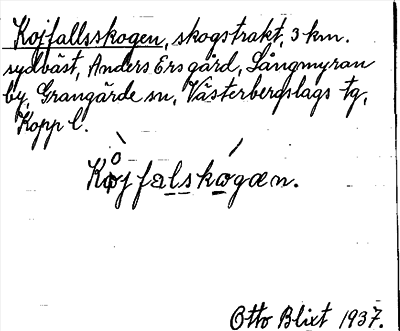 Kojfallsskogen, skogstrakt, 3 km.
sydväst, Anders Ers gård, Långmyran
by, Grangärde sn, Västerbergslags tg,
Kopp l.
Kåj falskogæn.
Otto Blixt 1937.